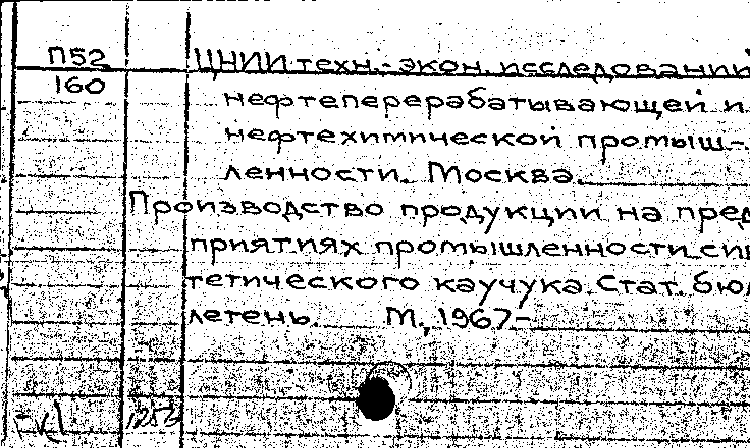 П52 ЦНИИ техн.-экон. исследований
160 нефтеперерабатывающей и
нефтехимической промыш-
ленности. Москва.
Производство продукции на пред
приятиях промышленности син
тетического каучука. Стат. бюл
летень. М., 1967-